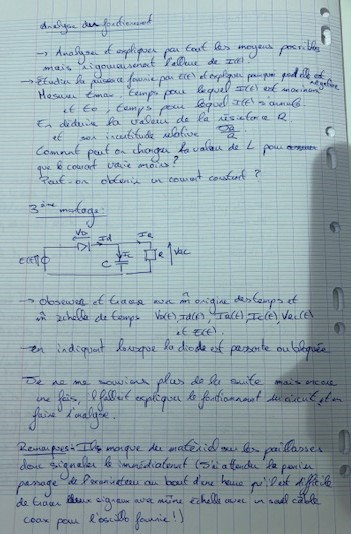 Analyse du fonctionement
→ Analyse et expliquer par tout les moyens possibles
mais rigoureusement l'allure de I(t).
→ Etudier la puissance fournie par E(t) et expliquer pourquoi quand elle est négative
Mesurer tmax : temps pour lequel I(t) est maximum
et to : temps pour lequel I(t) s'annule.
En déduire la valeur de la résistance R
et son incertitude relative
Comment peut on changer la valeur de L pour
que le courant varie moins ?
Peut-on obtenir un courant constant ?
3ème montage :
VD Id IR
E(t) Ic C R Vac
→ Observer et tracer avec m̂ origine des temps et
m̂ echelle de temps Vd(t) Id(t) Ic(t) Vac(t)
et E(t).
→ en indiquant lorsque la diode est passante ou bloquée
Je ne me souviens plus de la suite mais
une fois, il fallait expliquer le fontionnement du circuit, et en
faire l'analyse.
Remarques : Ils manque du matériel sur les paillasses
donc signaler le immédiatement (J'ai attendu le premier
passage de l'examinateur au bout d'une heure qu'il est difficile
de tracer deux signaux avec même échelle avec un seul câble
coax pour l'oscillo fournie !)